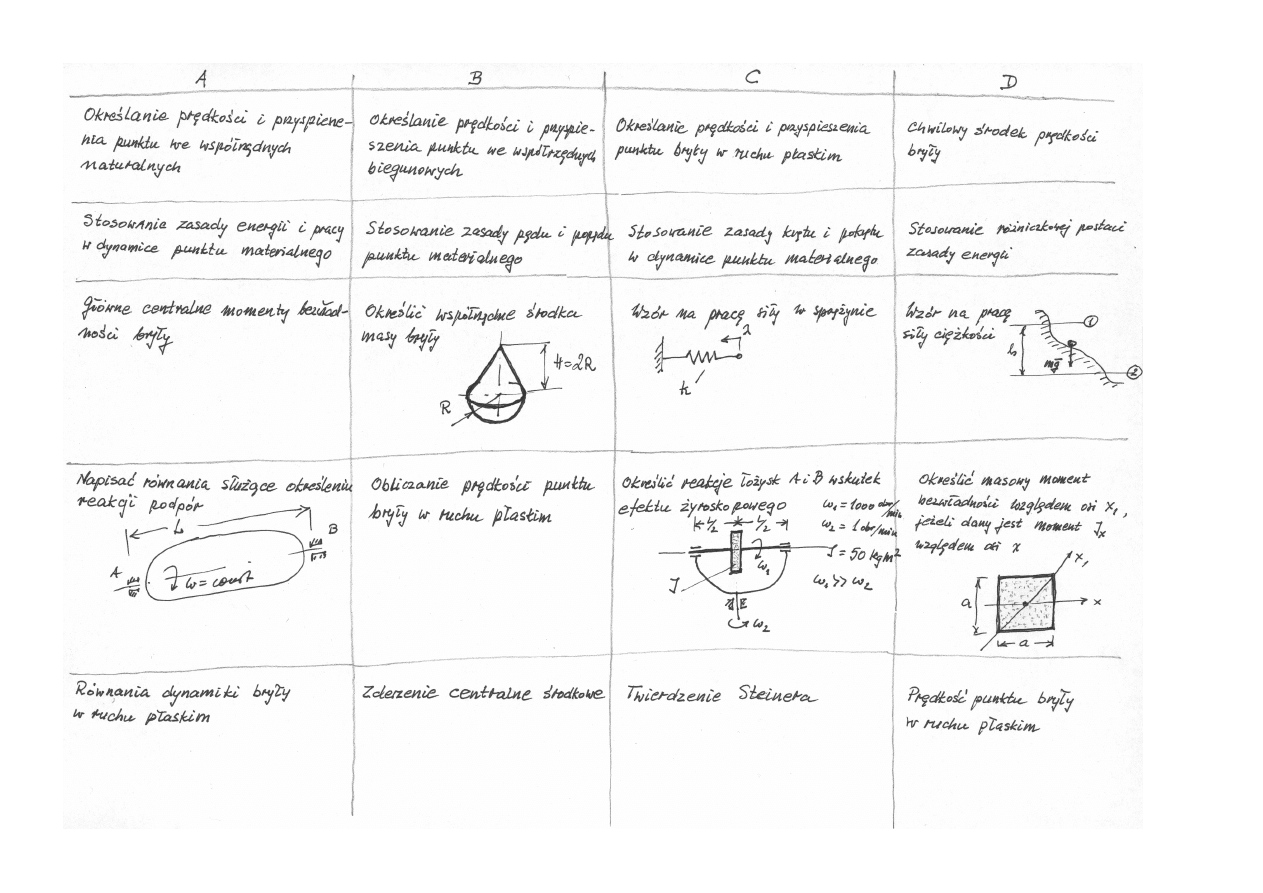 A
B
C
D
Określanie prędkości i przyspiesze-
nia punktu we współrzędnych
naturalnych
Określanie prędkości i przyspie-
szenia punktu we współrzędnych
biegunowych
Określanie prędkości i przyspieszenia
punktu bryły w ruchu płaskim
Chwilowy środek prędkości
bryły
Stosowanie zasady energii i pracy
w dynamice punktu materialnego
Stosowanie zasady pędu i popędu
punktu materialnego
Stosowanie zasady krętu i pokrętu
w dynamice punktu materialnego
Stosowanie różniczkowej postaci
zasady energii
Główne centralne momenty bezwład-
ności bryły
Określić współrzędne środka
masy bryły
H=2R
R
Wzór na pracę siły w sprężynie
λ
k
Wzór na pracę
siły ciężkości
1
h
mg
2
Napisać równania służące określeniu
reakcji podpór
L
B
A
ω=const
Obliczanie prędkości punktu
bryły w ruchu płaskim
Określić reakcje łożysk A i B wskutek
efektu żyroskopowego
ω₁ = 1000 obr/min
L/2 L/2
ω₂ = 1 obr/min
J = 50 kgm²
ω₁
J
ω₁ >> ω₂
ω₂
Określić masowy moment
bezwładności względem osi x₁,
jeżeli dany jest moment Jx
względem osi x
x₁
a
x
a
Równania dynamiki bryły
w ruchu płaskim
Zderzenie centralne środkowe
Twierdzenie Steinera
Prędkość punktu bryły
w ruchu płaskim